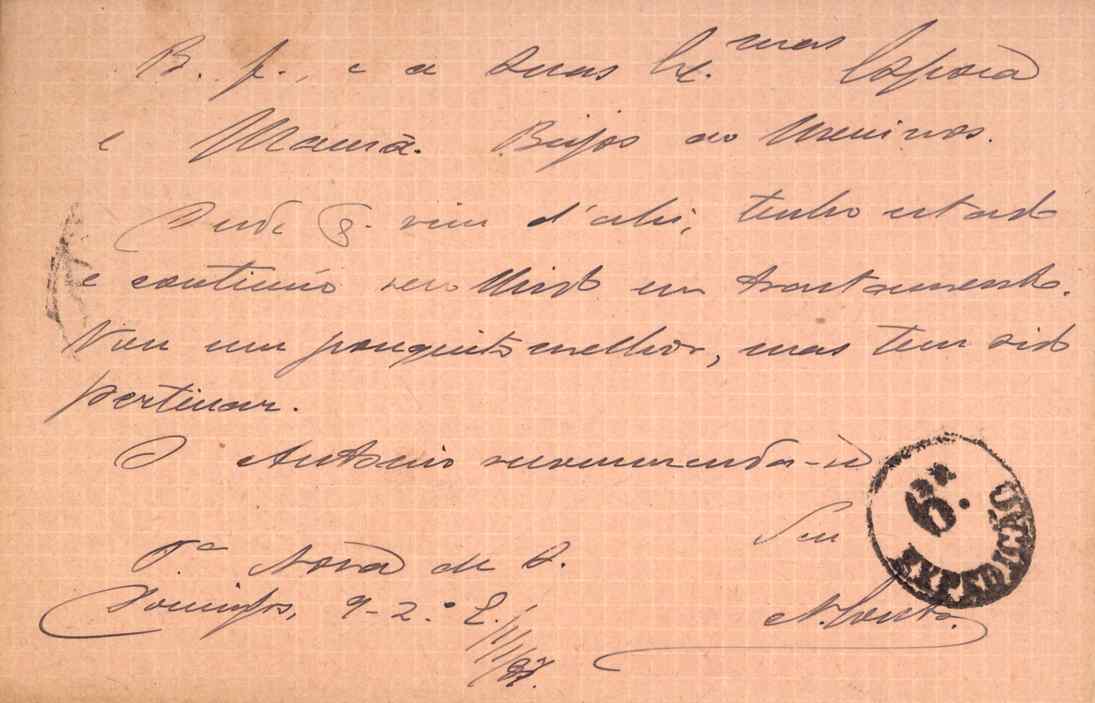 B. f., e a Suas Ex.mas Esposa
e Mamã. Beijos ao Meninos.
Desde q. vim d'ahi, tenho estado
e continúo em tractamento.
Vou um pouquito melhor, mas tem sido
pertinaz.
O Antonio recommenda-se
Seu
T.a Nova de S.
Domingos, 9-2.º E.
A. Couto.
6.a
EXPEDIÇÃO